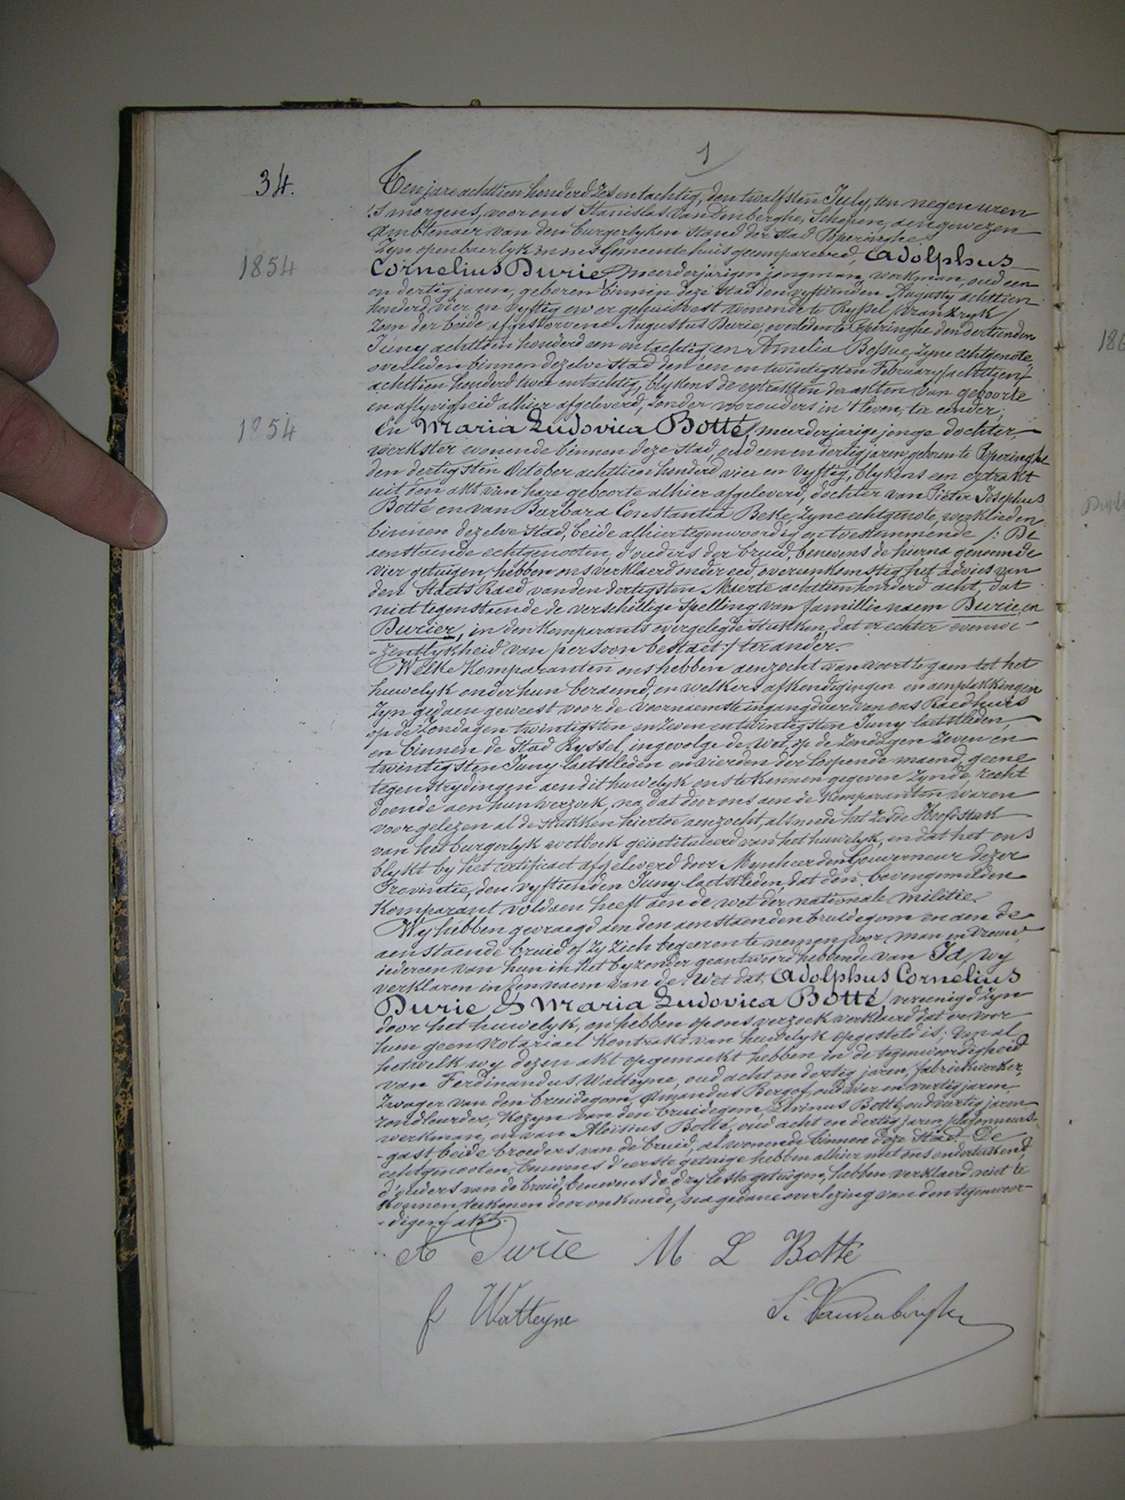 34.
Ten jare achttien honderd zes en tachtig, den twalfsten July, ten negen uren
's morgens, voor ons Stanislas Van Denberghe, Schepen, aengewezen
Ambtenaer van den burgerlyken stand der stad Poperinghe.
Zyn openbaerlyk in ons Gemeentehuis gecompareerd, Adolphus
1854
Cornelius Durie, meerderjarigen jongman, werkman, oud een
en dertig jaren, geboren binnen deze stad den vyftienden Augusty achttien
honderd vier en vyftig en er gehuisvest wonende te Ryssel, Frankryk,
zoon der beide afgestorvene Augustus Durie, overleden te Poperinghe den dertienden
Juny achttien honderd een en tachtig en Amelia Bossue, zyne echtgenote,
overleden binnen dezelve stad den een en twintigsten February
achttien honderd twee en tachtig, blykens de extrakten der akten van geboorte
en aflyvigheid alhier afgeleverd, zonder voorouders in 't leven, ter eender;
1854
En Maria Ludovica Botté, meerderjarige jonge dochter,
werkster wonende binnen deze stad, oud een en dertig jaren, geboren te Poperinghe
den dertigsten October achttien honderd vier en vyftig, blykens een extrakt
uit den akt van hare geboorte alhier afgeleverd, dochter van Pieter Josephus
Botté en van Barbara Constantia Beke, zyne echtgenote, werklieden
binnen dezelve stad, beide alhier tegenwoordig en toestemmende /: De
aenstaende echtgenooten, d'ouders der bruid, benevens de hierna genoemde
vier getuigen, hebben ons verklaerd onder eed, overeenkomstig het advies van
den Staets Raed van den dertigsten Maerte achttien honderd acht, dat
niet tegenstaende de verschillige spelling van familienaem Durie, en
Durier, in den Komparants overgelegde stukken, dat er echter eenwe-
zentlykheid van persoon bestaet :/ ter ander.
Welke Komparanten ons hebben aenzocht van voort te gaen tot het
huwelyk onder hun beraemd, en welkers afkondigingen en aenplakkingen
zyn gedaen geweest voor de voornaemste ingangdeur van ons Raedhuis
op de zondagen twintigsten en zeven en twintigsten Juny laetstleden,
en binnen de stad Ryssel, ingevolge de wet, op de zondagen zeven en
twintigsten Juny laetstleden en vierden der loopende maend, geene
tegenstrydingen aen dit huwelyk ons te kennen gegeven zynde, recht
doende aen hun verzoek, na dat door ons aen de Komparanten waren
voorgelezen al de stukken hiertoe aenzocht, alsmede het zesde Hoofdstuk
van het burgerlyk wetboek geïntituleerd van het huwelyk, en dat het ons
blykt by het certificaet afgeleverd door Mynheer den Gouverneur dezer
Provincie, den vyftienden Juny laetstleden, dat den bovengemelden
Komparant voldaen heeft aen de wet der nationale militie.
Wy hebben gevraegd aen den aenstaenden bruidegom en aen de
aenstaende bruid of zy zich begeeren te nemen voor man en vrouw,
iedereen van hun in het byzonder geantwoord hebbende van Ja, wy
verklaren in den naem van de Wet dat, Adolphus Cornelius
Durie & Maria Ludovica Botté, vereenigd zyn
door het huwelyk, en hebben op ons verzoek verklaerd dat er voor
hun geen Notariael Kontrakt van huwelyk opgesteld is; van al
hetwelk wy dezen akt opgemaekt hebben in de tegenwoordigheid
van Ferdinandus Watteyne, oud acht en dertig jaren, fabriekwerker,
zwager van den bruidegom, Amandus Bergof, oud vier en veertig jaren,
rondleurder, Kozyn van den bruidegom, Livinus Botté, oud veertig jaren,
werkman, en van Aloisius Botté, oud acht en dertig jaren, plafonneurs-
gast, beide broeders van de bruid, al wonende binnen deze Stad. De
echtgenooten, benevens d'eerste getuige hebben alhier met ons onderteekend,
d'ouders van de bruid, benevens de dry leste getuigen, hebben verklaerd niet te
konnen teekenen door onkunde, na gedane overlezing van den tegenwoor-
digen akt.
A Durie M L Botté
f Watteyne S. Vandenberghe